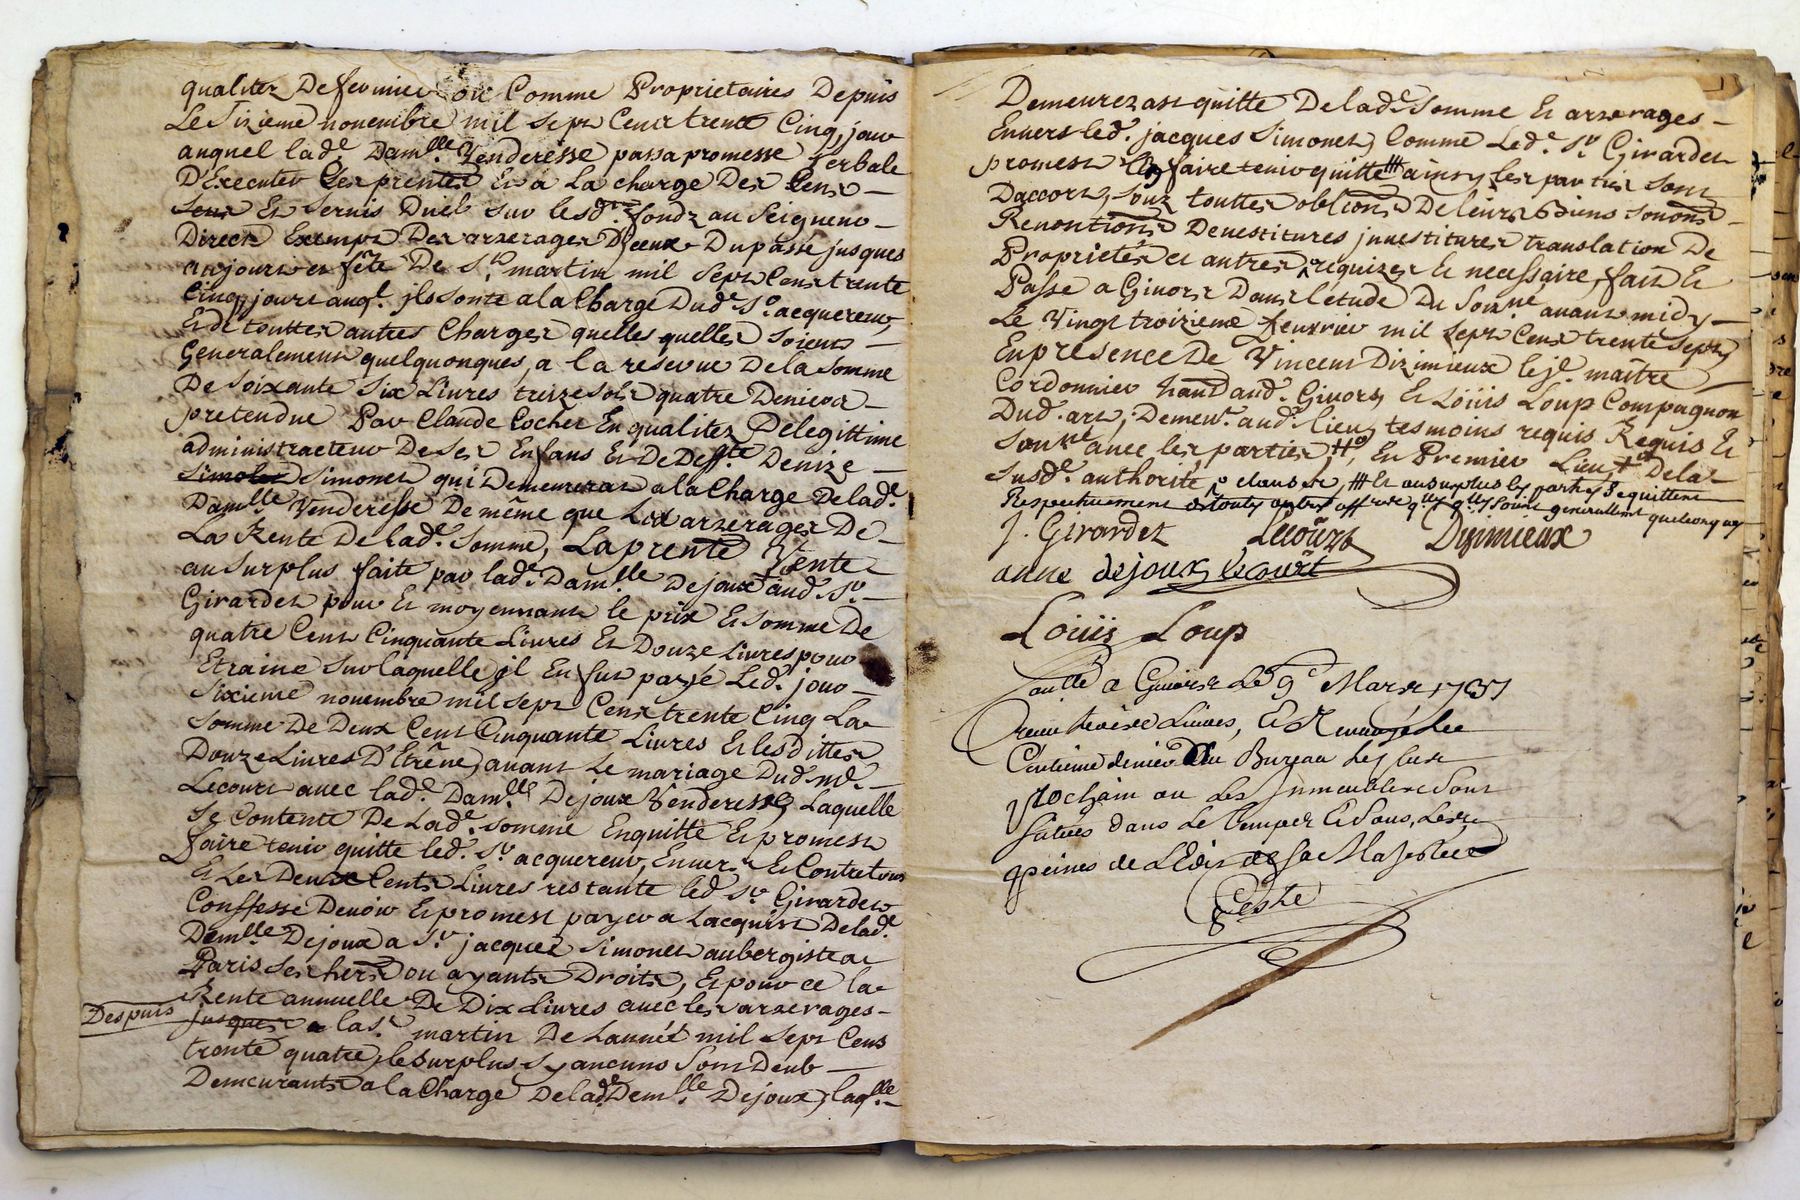 qualitez De fermier ou Comme Proprietaires Depuis
Le Sixieme novembre mil sept Cent trente Cinq, jour
auquel lad.e Dam.lle Venderesse passa promesse Verbale
D'Executer Les pnte Et a La charge Des Cens
Et Servis Duel sur lesd. fondz au Seigneur
Direct Exempt Des arrerages D'jceux Du passé jusques
au jour et fête De S.t martin mil Sept Cent trente
Cinq, jour auq.l jls sont a la Charge Dud.e S.r acquereur,
Et de touttes autres Charges quelles quelles soient
Generalement quelquonques, a la reserve De la somme
De Soixante Six Livres treize sols quatre Deniers
pretendue Par Claude Cochet En qualitez De legittime
administracteur De Ses Enfans Et De Deff.te Denize
Simonet qui Demeurera a la Charge De lad.e
Dam.lle Venderesse De même que Les arrerages De
La Rente De lad.e Somme, La pnte Vente
au Surplus faite par lad.e Dam.lle Dejoux aud. S.r
Girardet pour Et moyennant le prix Et Somme De
quatre Cent Cinquante Livres Et Douze Livres pour
Etraine Sur laquelle jl En fut payé Led. jour
Sixieme novembre mil sept Cent trente Cinq La
Somme De Deux Cent Cinquante Livres Et lesdittes
Douze Livres D'Etrêne, avant Le mariage Dud. m.e
Lecourt avec lad.e Dam.lle Dejoux Venderesse, Laquelle
Se Contente De Lad.e Somme Enquitte Et promest
faire tenir quitte led. S.r acquereur, Envers Et Contre tous
Et Les Deux Cents Livres restante led S.r Girardet
Confesse Devoir Et promest payer a Lacquist De lad.e
Dem.lle Dejoux a S.r jacques Simonet aubergiste a
Paris Ses hers ou ayants Droits, Et pour ce la
Rente annuelle De Dix Livres avec les arrerages
Despuis jusques a la S.t martin De Lannéé mil Sept Cens
trente quatre, le Surplus, Sy aucuns Sont Deub
Demeurants a la Charge De lad.e Dem.lle Dejoux, laq.lle
Demeurezast quitte De lad.e Somme Et arrerages
Envers led. jacques Simonet, Comme Led.e S.r Girardet
promest faire tenir quitte ainsy les parties Sont
Daccort, Souz touttes oblions De leurs Biens
Renontions Devestitures jnvestitures translation De
Proprietés et autres requizes Et necessaire, fait Et
Passé a Givors Dans létude Du Son.ne avant midy
Le Vingt troizieme fevrier mil Sept Cent trente Sept,
En présence De Vincent Dizimieux le j.e maître
Cordonnier hand aud. Givors, Et Löüis Loup Compagnon
Dud. art, Demeur.t aud. lieu, tesmoins requis Requis Et
avec les parties, En Premier Lieu De la
Susd.e authorité, clauses, Et au surplus les parties Se quittent
Respectivement
J. Girardet Lecoürt Dizimieux
anne dejoux lecoürt
Loüis Loup
a Givors Le 9.e Mars 1737
Reçu treize Livres, Et Renvoyé Le
Centieme denier Au Bureau Les plus
prochain ou Les Jmmeubles Sont
Situés dans Le temps Et Sous, Les
peines de L'Edit de Sa Majesté